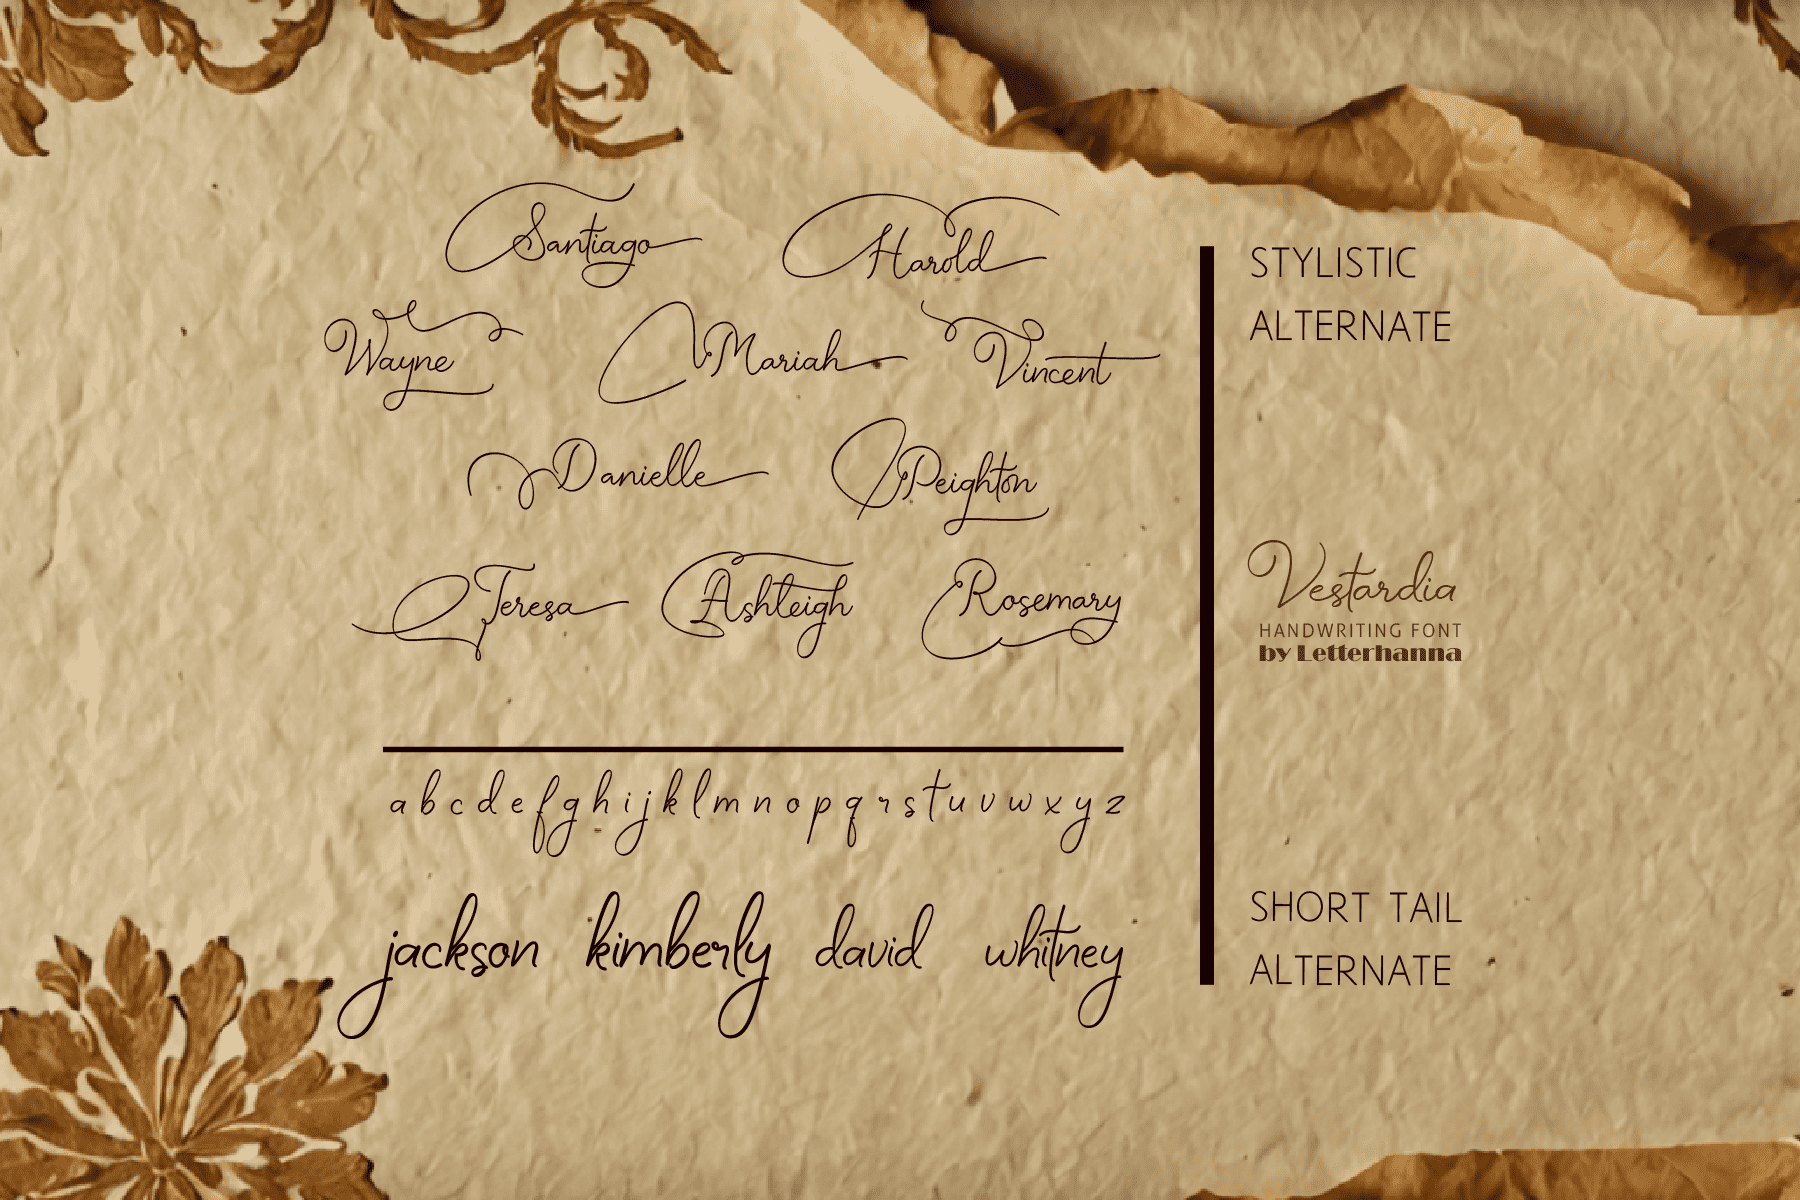 Santiago Harold
Wayne Mariah Vincent
Danielle Peighton
Teresa Ashleigh Rosemary
a b c d e f g h i j k l m n o p q r s t u v w x y z
jackson kimberly david whitney
STYLISTIC
ALTERNATE
Vestardia
HANDWRITING FONT
by Letterhanna
SHORT TAIL
ALTERNATE